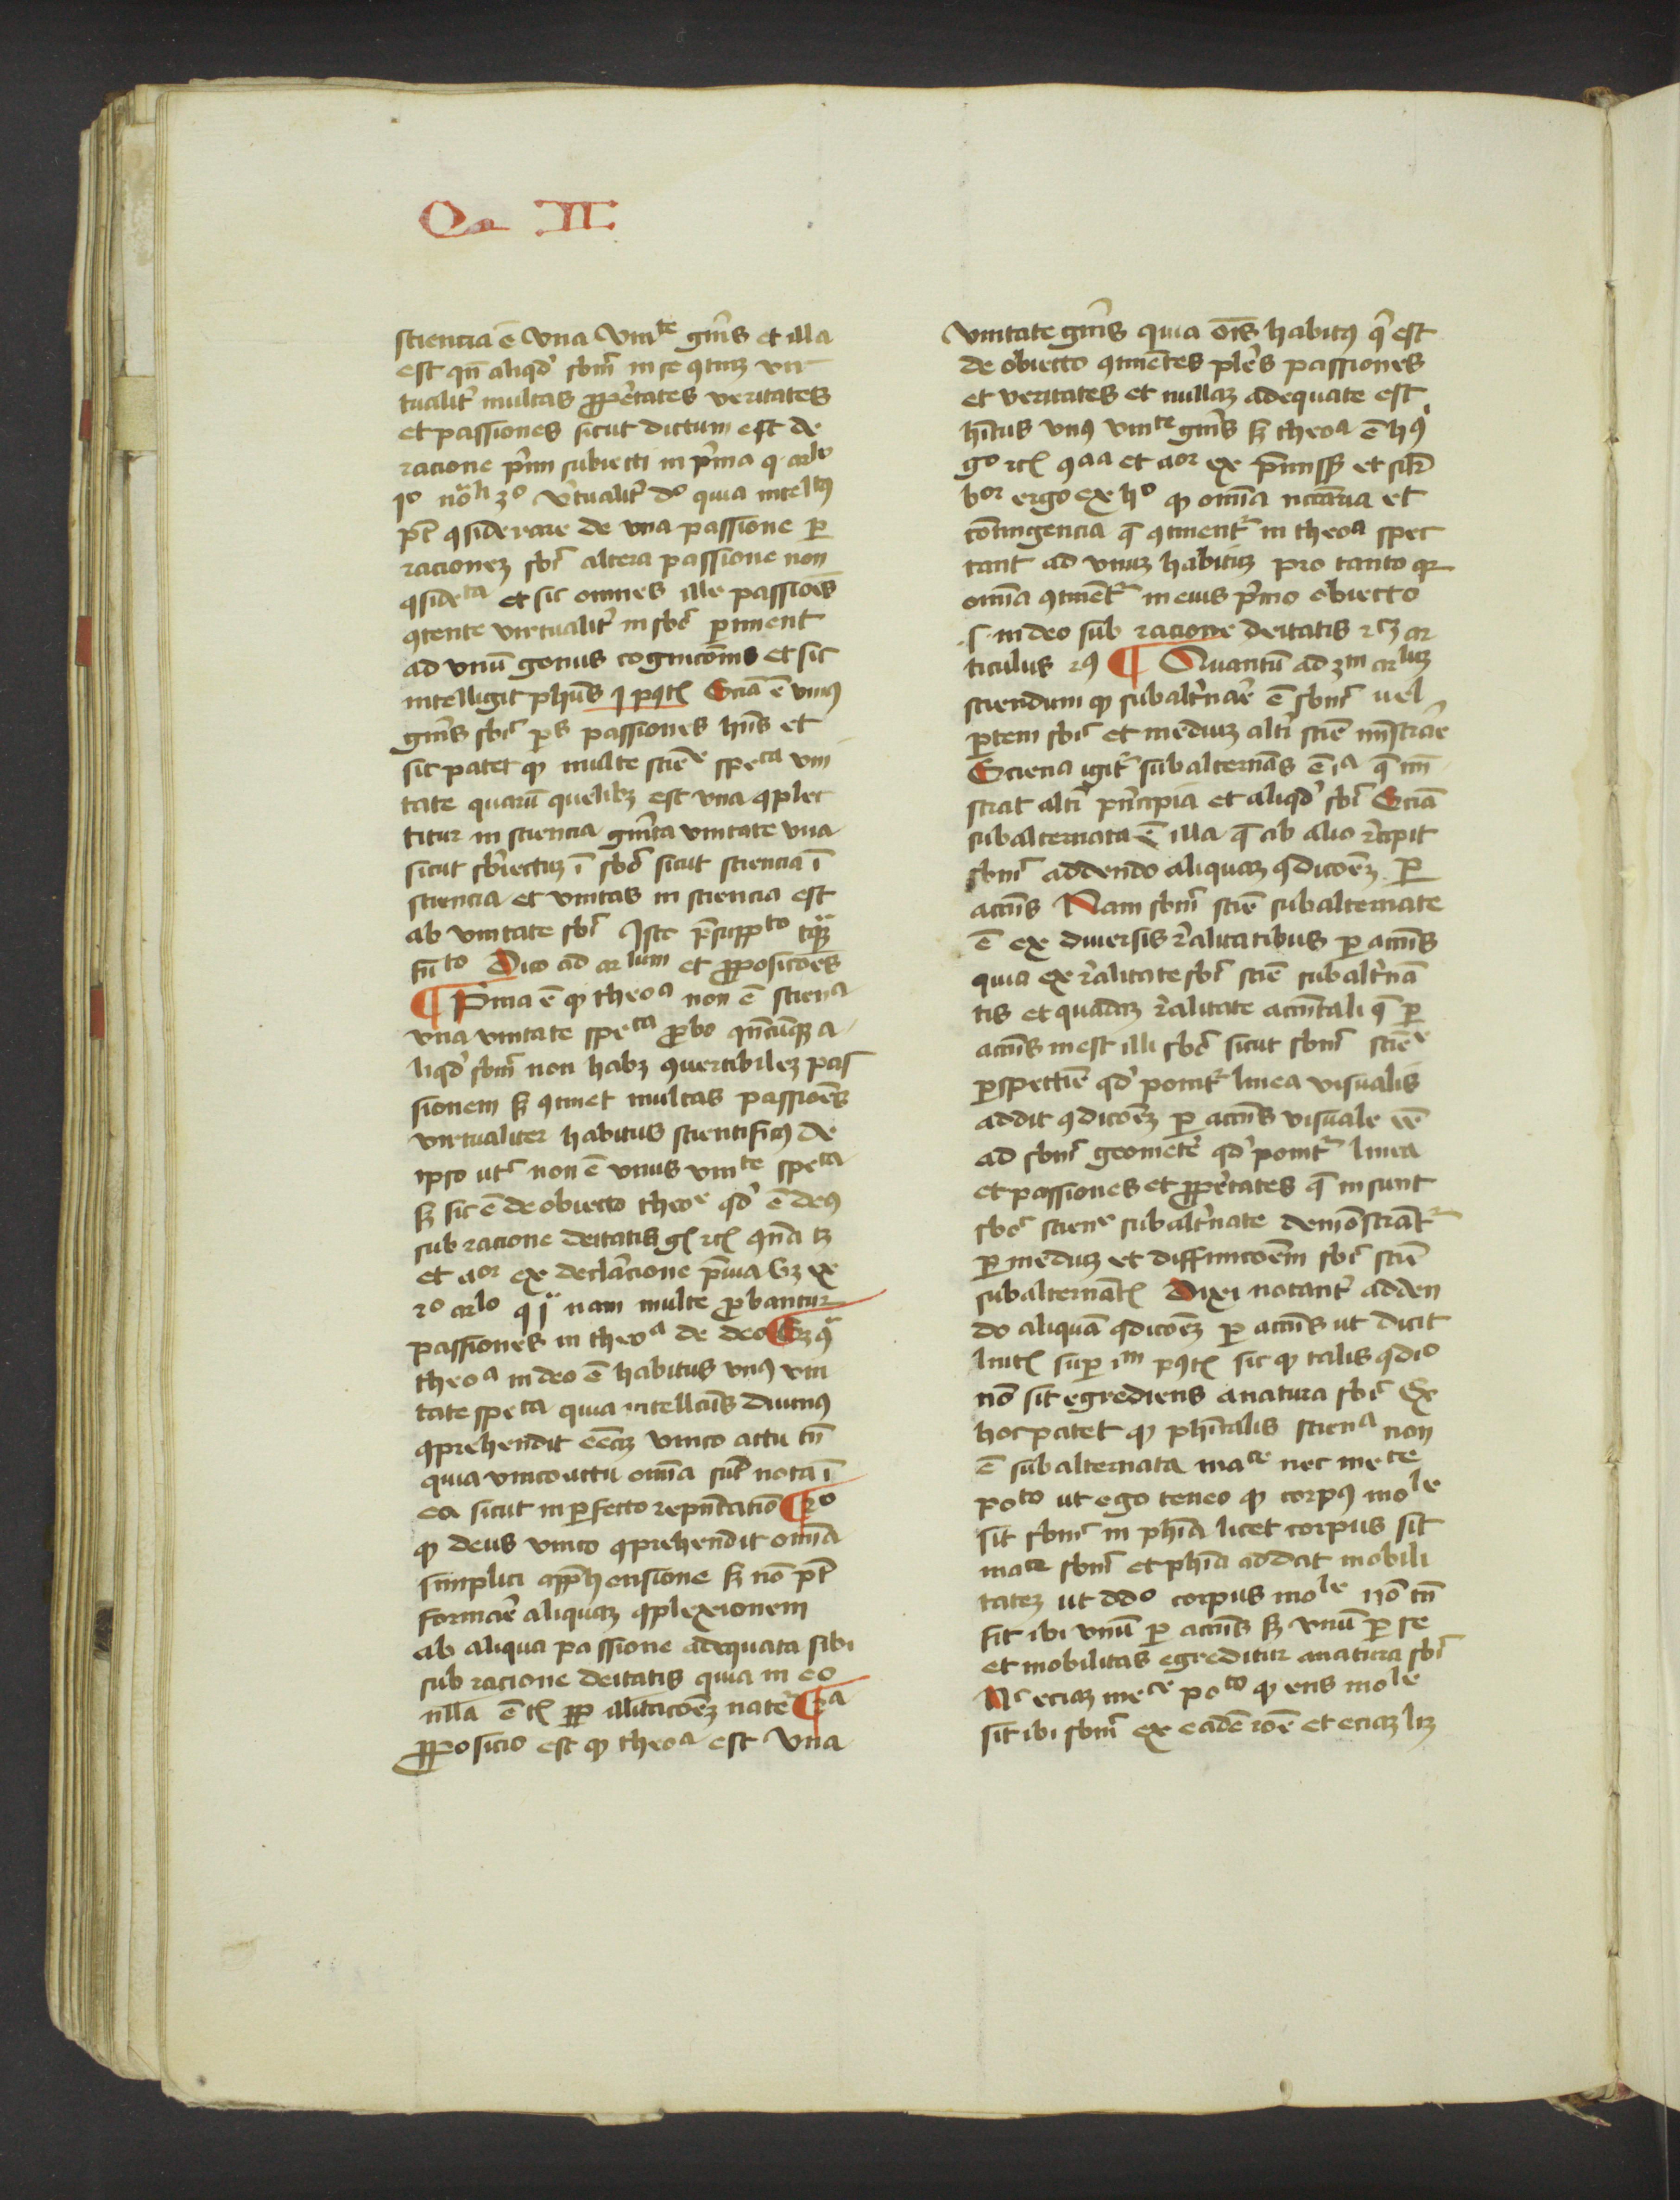 Qo II
sciencia ē una unite gn̄is et illa
est qn̄ aliqd' sbm̄ in se ꝯtinꝫ vir
tualit' multas ꝓp'etates veritates
et passiones sicut dictum est de
racione p'mi subiecti in p'ma q. arlo
1o no 3o v'tualit' do quia intellꝰ
pt ꝯsiderare de una passione ꝑ
racioneꝫ sbi altera passione non
ꝯsideta et sic omnes ille passiōes
virtualit' in sbo ꝑtinent
ad unū genus cognicōnis et sic
intelligit phūs Sciā ē unius
gn̄is sbi ps passiones hn̄s et
sic patet ꝙ multe scie speca uni
tate quarū quelibꝫ est una ꝯplec
titur in sciencia gn̄ita unitate una
sicut sb'iectuꝫ ī sbo sicut sciencia ī
sciencia et unitas in sciencia est
ab unitate sbi Isto p̄suppto
Dico ad arlum et ꝓposicōes
¶ P'ma ē ꝙ theoa non ē sciena
una unitate speca ꝓbo qn̄cūqꝫ a
liqd' sbm̄ non habꝫ ꝯvertibileꝫ pas
sionem sꝫ ꝯtinet multas passiōes
virtualiter habitus scientificꝰ de
ipso ut non ē unus unite speca
sꝫ sic ē de obiecto theoe qd' ē deꝰ
sub racione deitatis
et aor ex declaracione
2o arlo nam multe ꝓbantur
passiones in theoa de deo
theoa in deo ē habitus unꝰ uni
tate speca quia intellcūs divinꝰ
ꝯprehendit unico actu tn̄
quia unico actu omnia sūt nota ī
ea sicut in ꝑfecto ¶ 2o
ꝙ deus unico ꝯprehendit omnia
simplici apprehensione sꝫ nō pt
formare aliquaꝫ ꝯplexionem
ab aliqua passione adequata sibi
sub racione deitatis quia in eo
nlla ē ¶ 2a
ꝓposicio est ꝙ theoa est una
unitate gn̄is quia oīs habitꝰ q' est
de obiecto ꝯtinētes pl'es passiones
et veritates et nullaꝫ adequate est
unꝰ unite gn̄is sꝫ theoa ē
go et aor ex et
bor ergo ex ho ꝙ omnia et
contingencia q̄ ꝯtinent' in theoa spec
tant ad unuꝫ habituꝫ pro tanto
omnia ꝯtinēt' in eius p'mo obiecto
.s. in deo sub racione deitatis ar
ticulus 2ꝰ ¶ Quantū ad 3m arluꝫ
sciendum ꝙ subalt'nare ē sbm̄ uel
ꝑtem sbi et mediuꝫ alt'i scie ministrare
Sciena igit' subalternans ē q̄
strat alt'i p'ncipia et aliqd' sbi Sciā
subalternata ē illa q̄ ab alio r'cipit
sbm̄ addendo aliquaꝫ ꝯdicōeꝫ ꝑ
accn̄s Nam sbm̄ scie subalternate
ē ex diversis r'alitatibus ꝑ accn̄s
quia ex r'alitate sbi scie subalt'nā
tis et quadaꝫ r'alitate accn̄tali q̄ ꝑ
accn̄s inest illi sbo sicut sbm̄ scie
ꝑspectie qd' ponit' linea visualis
addit ꝯdicōeꝫ ꝑ accn̄s visuale
ad sbm̄ geomet'e qd' ponit' linea
et passiones et ꝓp'etates q̄ insunt
sbo sciene subalt'nate demōstrāt'
ꝑ mediuꝫ et diffinicōem sbi scie
subalternāt Dixi notant' adden
do aliquā ꝯdicōeꝫ ꝑ accn̄s ut dicit
sup 1m sic ꝙ talis ꝯdio
nō sit egrediens a natura sbi Ex
hoc patet ꝙ ph'icalis sciena non
ē subalternata mace nec mece
poto ut ego teneo ꝙ corpꝰ mole
sit sbm̄ in phīa licet corpus sit
mace sbm̄ et phīa addat mobili
tateꝫ ut ddo corpus mole nō tn̄
sit ibi unū ꝑ accn̄s sꝫ unū ꝑ se
et mobilitas egreditur a natura sbi
Nc eciaꝫ mece poto ꝙ ens mole
sit ibi sbm̄ ex eadē roē et eciaꝫ lꝫ